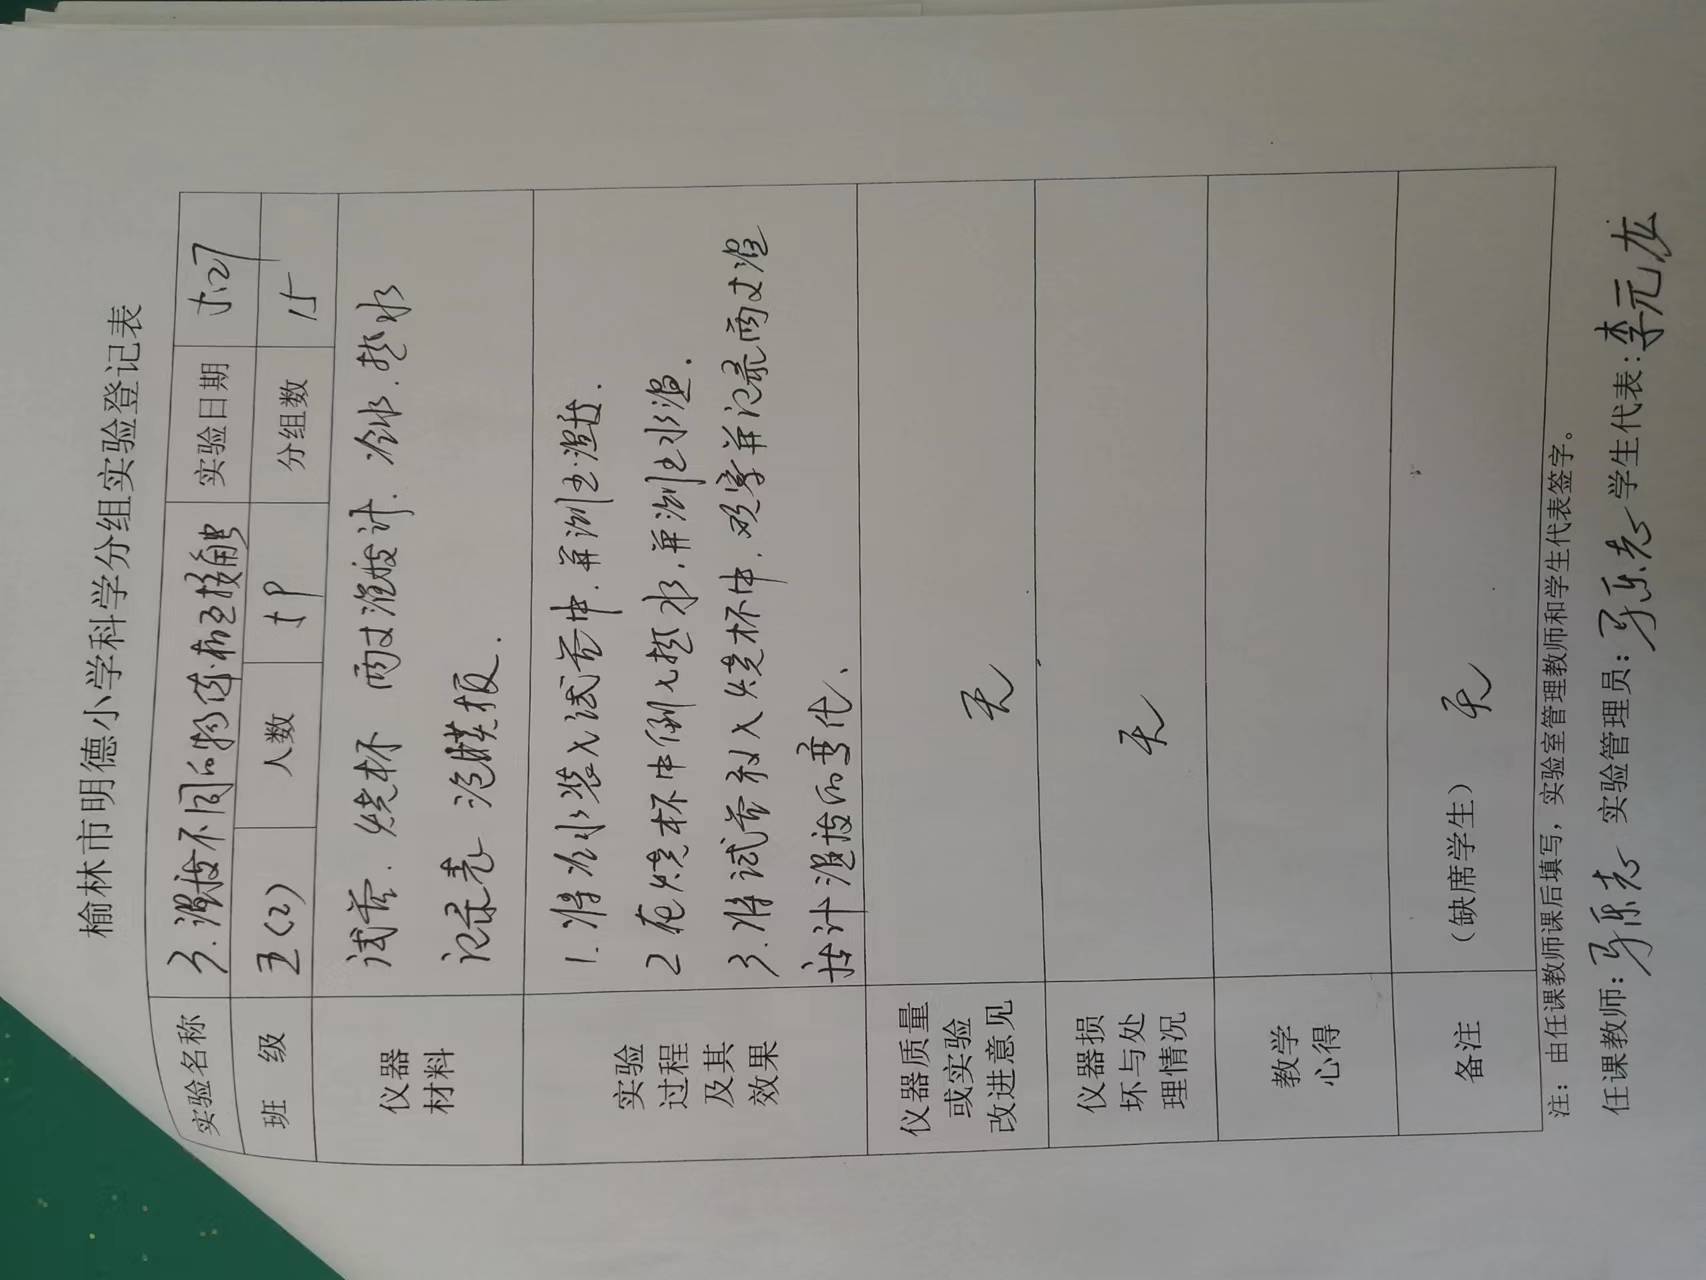 榆林市明德小学科学分组实验登记表
实验名称 3.温度不同的物体相互接触 实验日期 5.27
班 级 五(2) 人数 58 分组数 15
仪器材料 试管.烧杯 两支温度计.冷水.热水
记录表 泡沫板.
实验过程及其效果 1.将冷水装入试管中.并测出温度.
2 在烧杯中倒入热水.并测出水温.
3.将试管放入烧杯中.观察并记录两支温
度计温度的变化、
仪器质量或实验改进意见 无
仪器损坏与处理情况 无
教学心得
备注 （缺席学生） 无
注：由任课教师课后填写，实验室管理教师和学生代表签字。
任课教师: 实验管理员: 学生代表:李元龙